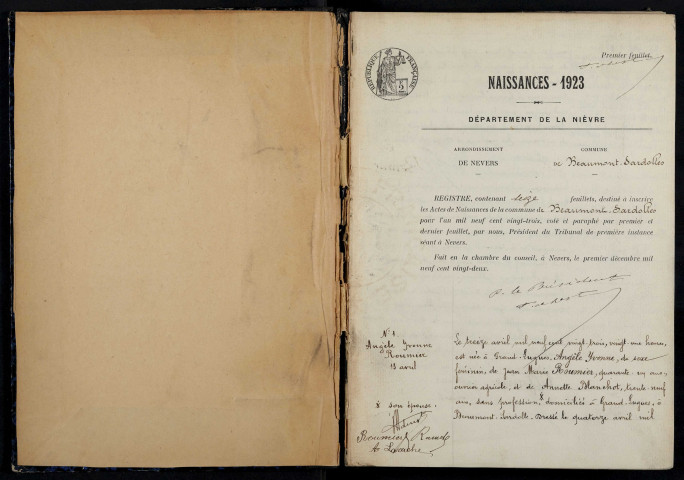 Premier feuillet.
RÉPUBLIQUE FRANÇAISE
NAISSANCES - 1923
DÉPARTEMENT DE LA NIÈVRE
ARRONDISSEMENT
DE NEVERS
COMMUNE
DE Beaumont-Sardolles
REGISTRE, contenant seize feuillets, destiné à inscrire
les Actes de Naissances de la commune de Beaumont-Sardolles
pour l'an mil neuf cent vingt-trois, coté et paraphé par premier et
dernier feuillet, par nous, Président du Tribunal de première instance
séant à Nevers.
Fait en la chambre du conseil, à Nevers, le premier décembre mil
neuf cent vingt-deux.
P. le Président
N° 1
Angèle Yvonne
Roumier
13 avril
& son épouse
Roumier
Le treize avril mil neuf cent vingt trois, vingt une heures,
est née à Grand-Lugues, Angèle Yvonne, de sexe
féminin, de Jean Marie Roumier, quarante un ans,
ouvrier agricole, et de Annette Blanchot, trente neuf
ans, sans profession, & domiciliés à Grand-Lugues, à
Beaumont-Sardolle. Dressé le quatorze avril mil